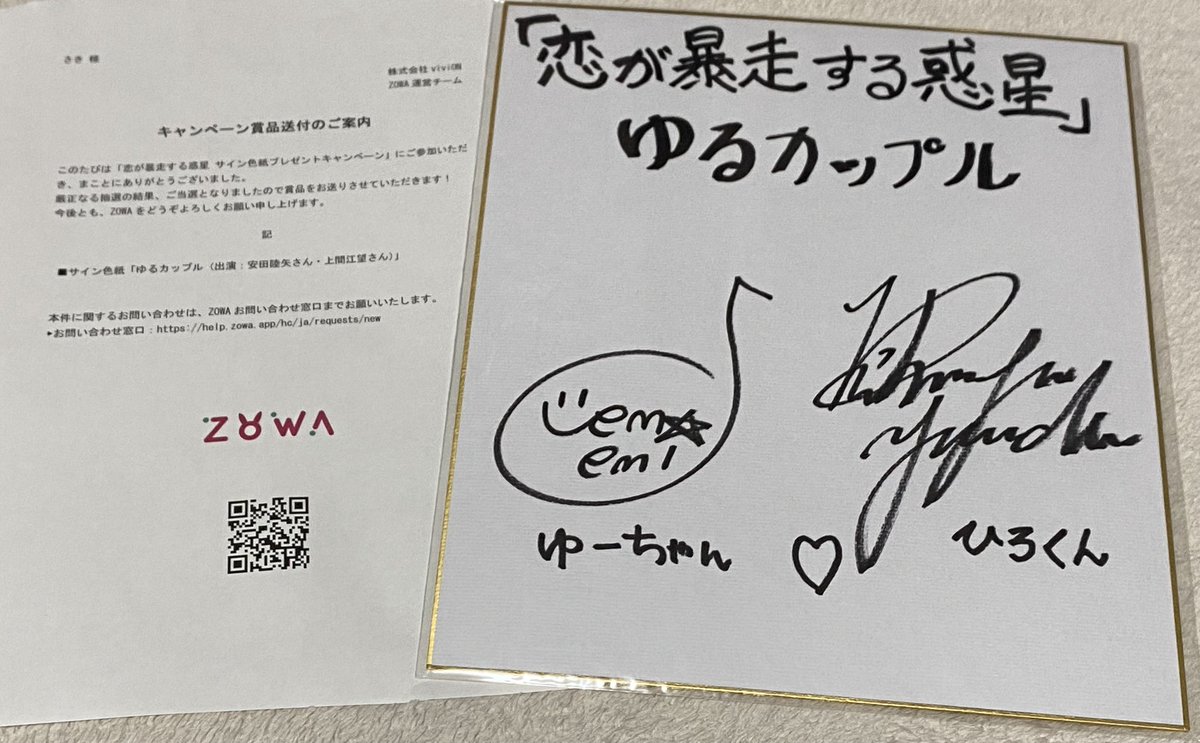 さき 様
株式会社 viviON
ZOWA 運営チーム
キャンペーン賞品送付のご案内
このたびは「恋が暴走する惑星 サイン色紙プレゼントキャンペーン」にご参加いただ
き、まことにありがとうございました。
厳正なる抽選の結果、ご当選となりましたので賞品をお送りさせていただきます!
今後とも、ZOWA をどうぞよろしくお願い申し上げます。
記
■サイン色紙「ゆるカップル(出演:安田陸矢さん・上間江望さん)」
本件に関するお問い合わせは、ZOWA お問い合わせ窓口までお願いいたします。
▸お問い合わせ窓口:https://help.zowa.app/hc/ja/requests/new
ZOWA
「恋が暴走する惑星」
ゆるカップル
emi
ゆーちゃん ♡ ひろくん